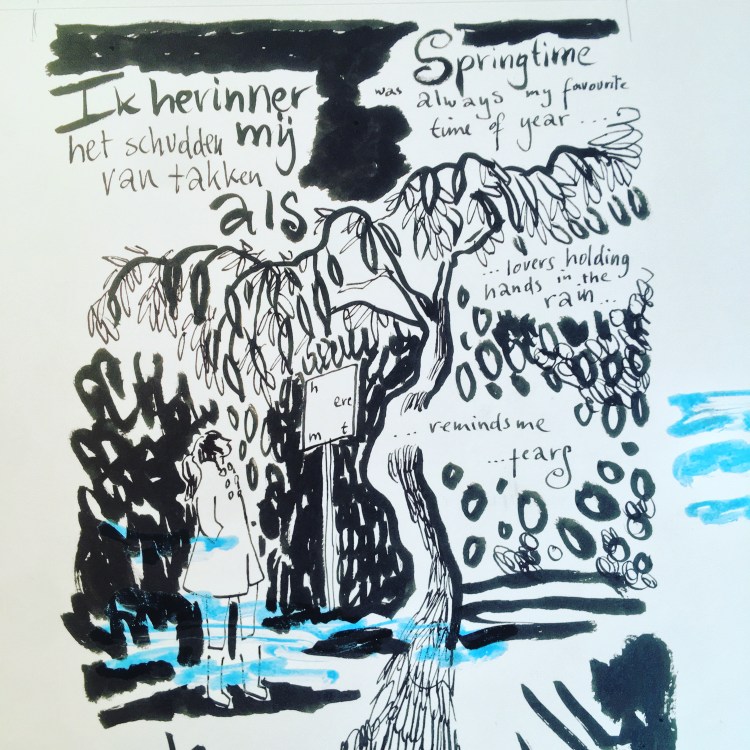 Ik herinner
mij
het schudden
van takken
als
Springtime
was always my favourite
time of year ....
... lovers holding
hands in the
rain ...
h ere
m t
... reminds me
... tears